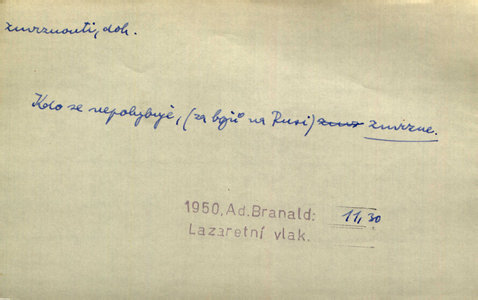 zmrznouti, dok.
Kdo se nepohybuje, (za bojů na Rusi) zmrzne.
1950, Ad.Branald: 11,30
Lazaretní vlak.